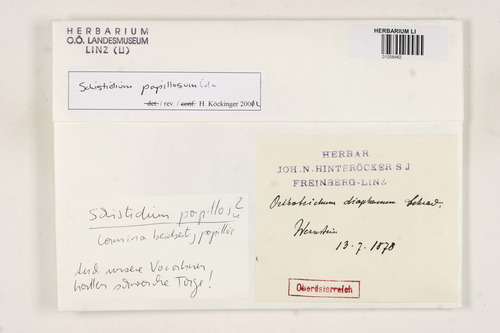 HERBARIUM
O.Ö. LANDESMUSEUM
LINZ (LI)
HERBARIUM LI
Schistidium papillosum Culm.
det. / rev. / conf. H. Köckinger 200
HERBAR
JOH. N. HINTERÖCKER S J
FREINBERG-LINZ
Orthotrichum diaphanum Schrad.
Wernstein
13. 7. 1878
Schistidium papillos?
Lamina papillös
And unsere Vorfahren
hatten schwache Tage!
Oberösterreich